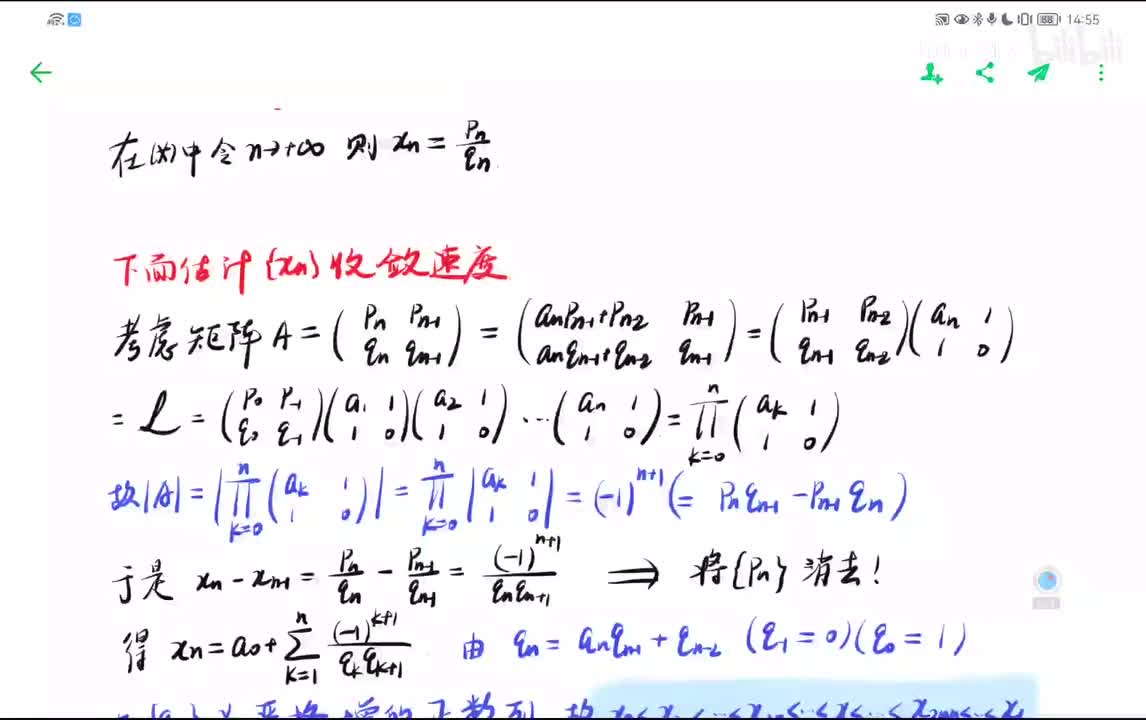 14:55
bilibili
在(*)中令 n→+∞ 则 xₙ = pₙ/qₙ
下面估计{xₙ}收敛速度
考虑矩阵 A = (pₙ pₙ₋₁; qₙ qₙ₋₁) = (aₙpₙ₋₁+pₙ₋₂ pₙ₋₁; aₙqₙ₋₁+qₙ₋₂ qₙ₋₁) = (pₙ₋₁ pₙ₋₂; qₙ₋₁ qₙ₋₂)(aₙ 1; 1 0)
= … = (p₀ p₋₁; q₀ q₋₁)(a₁ 1; 1 0)(a₂ 1; 1 0)⋯(aₙ 1; 1 0) = ∏ₖ₌₀ⁿ (aₖ 1; 1 0)
故|A| = |∏ₖ₌₀ⁿ (aₖ 1; 1 0)| = ∏ₖ₌₀ⁿ |aₖ 1; 1 0| = (-1)ⁿ⁺¹ (= pₙqₙ₋₁ - pₙ₋₁qₙ)
于是 xₙ - xₙ₋₁ = pₙ/qₙ - pₙ₋₁/qₙ₋₁ = (-1)ⁿ⁺¹/(qₙqₙ₊₁) ⟹ 将{pₙ}消去!
得 xₙ = a₀ + ∑ₖ₌₁ⁿ (-1)ᵏ⁺¹/(qₖqₖ₊₁) 由 qₙ = aₙqₙ₋₁ + qₙ₋₂ (q₋₁ = 0)(q₀ = 1)